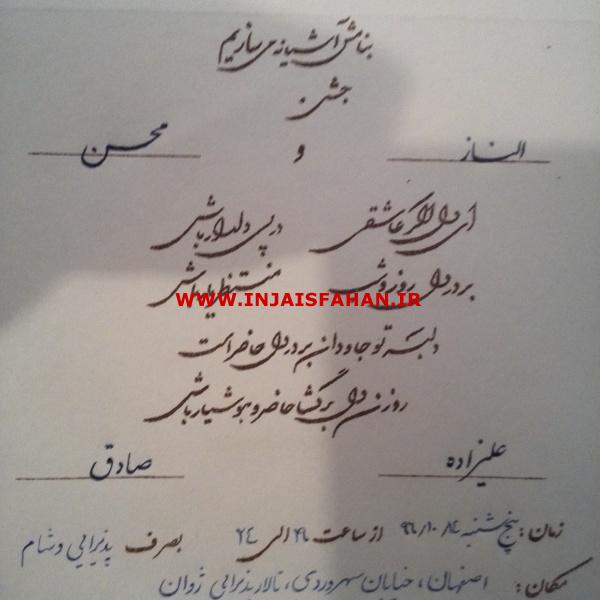 بنامش آشیانه می سازیم
جشن
الناز و محسن
ای دل اگر عاشقی در پی دلدار باش
بر در دل روز و شب منتظر یار باش
WWW.INJAISFAHAN.IR
دلبر تو جاودان بر در دل حاضر است
روزن دل برگشا حاضر و هوشیار باش
علیزاده صادق
زمان: پنج شنبه ۹۶/۱۰/۱۴ از ساعت الی ۲۴ بصرف پذیرایی و شام
مکان: اصفهان، خیابان سهروردی، تالار پذیرایی ژوان